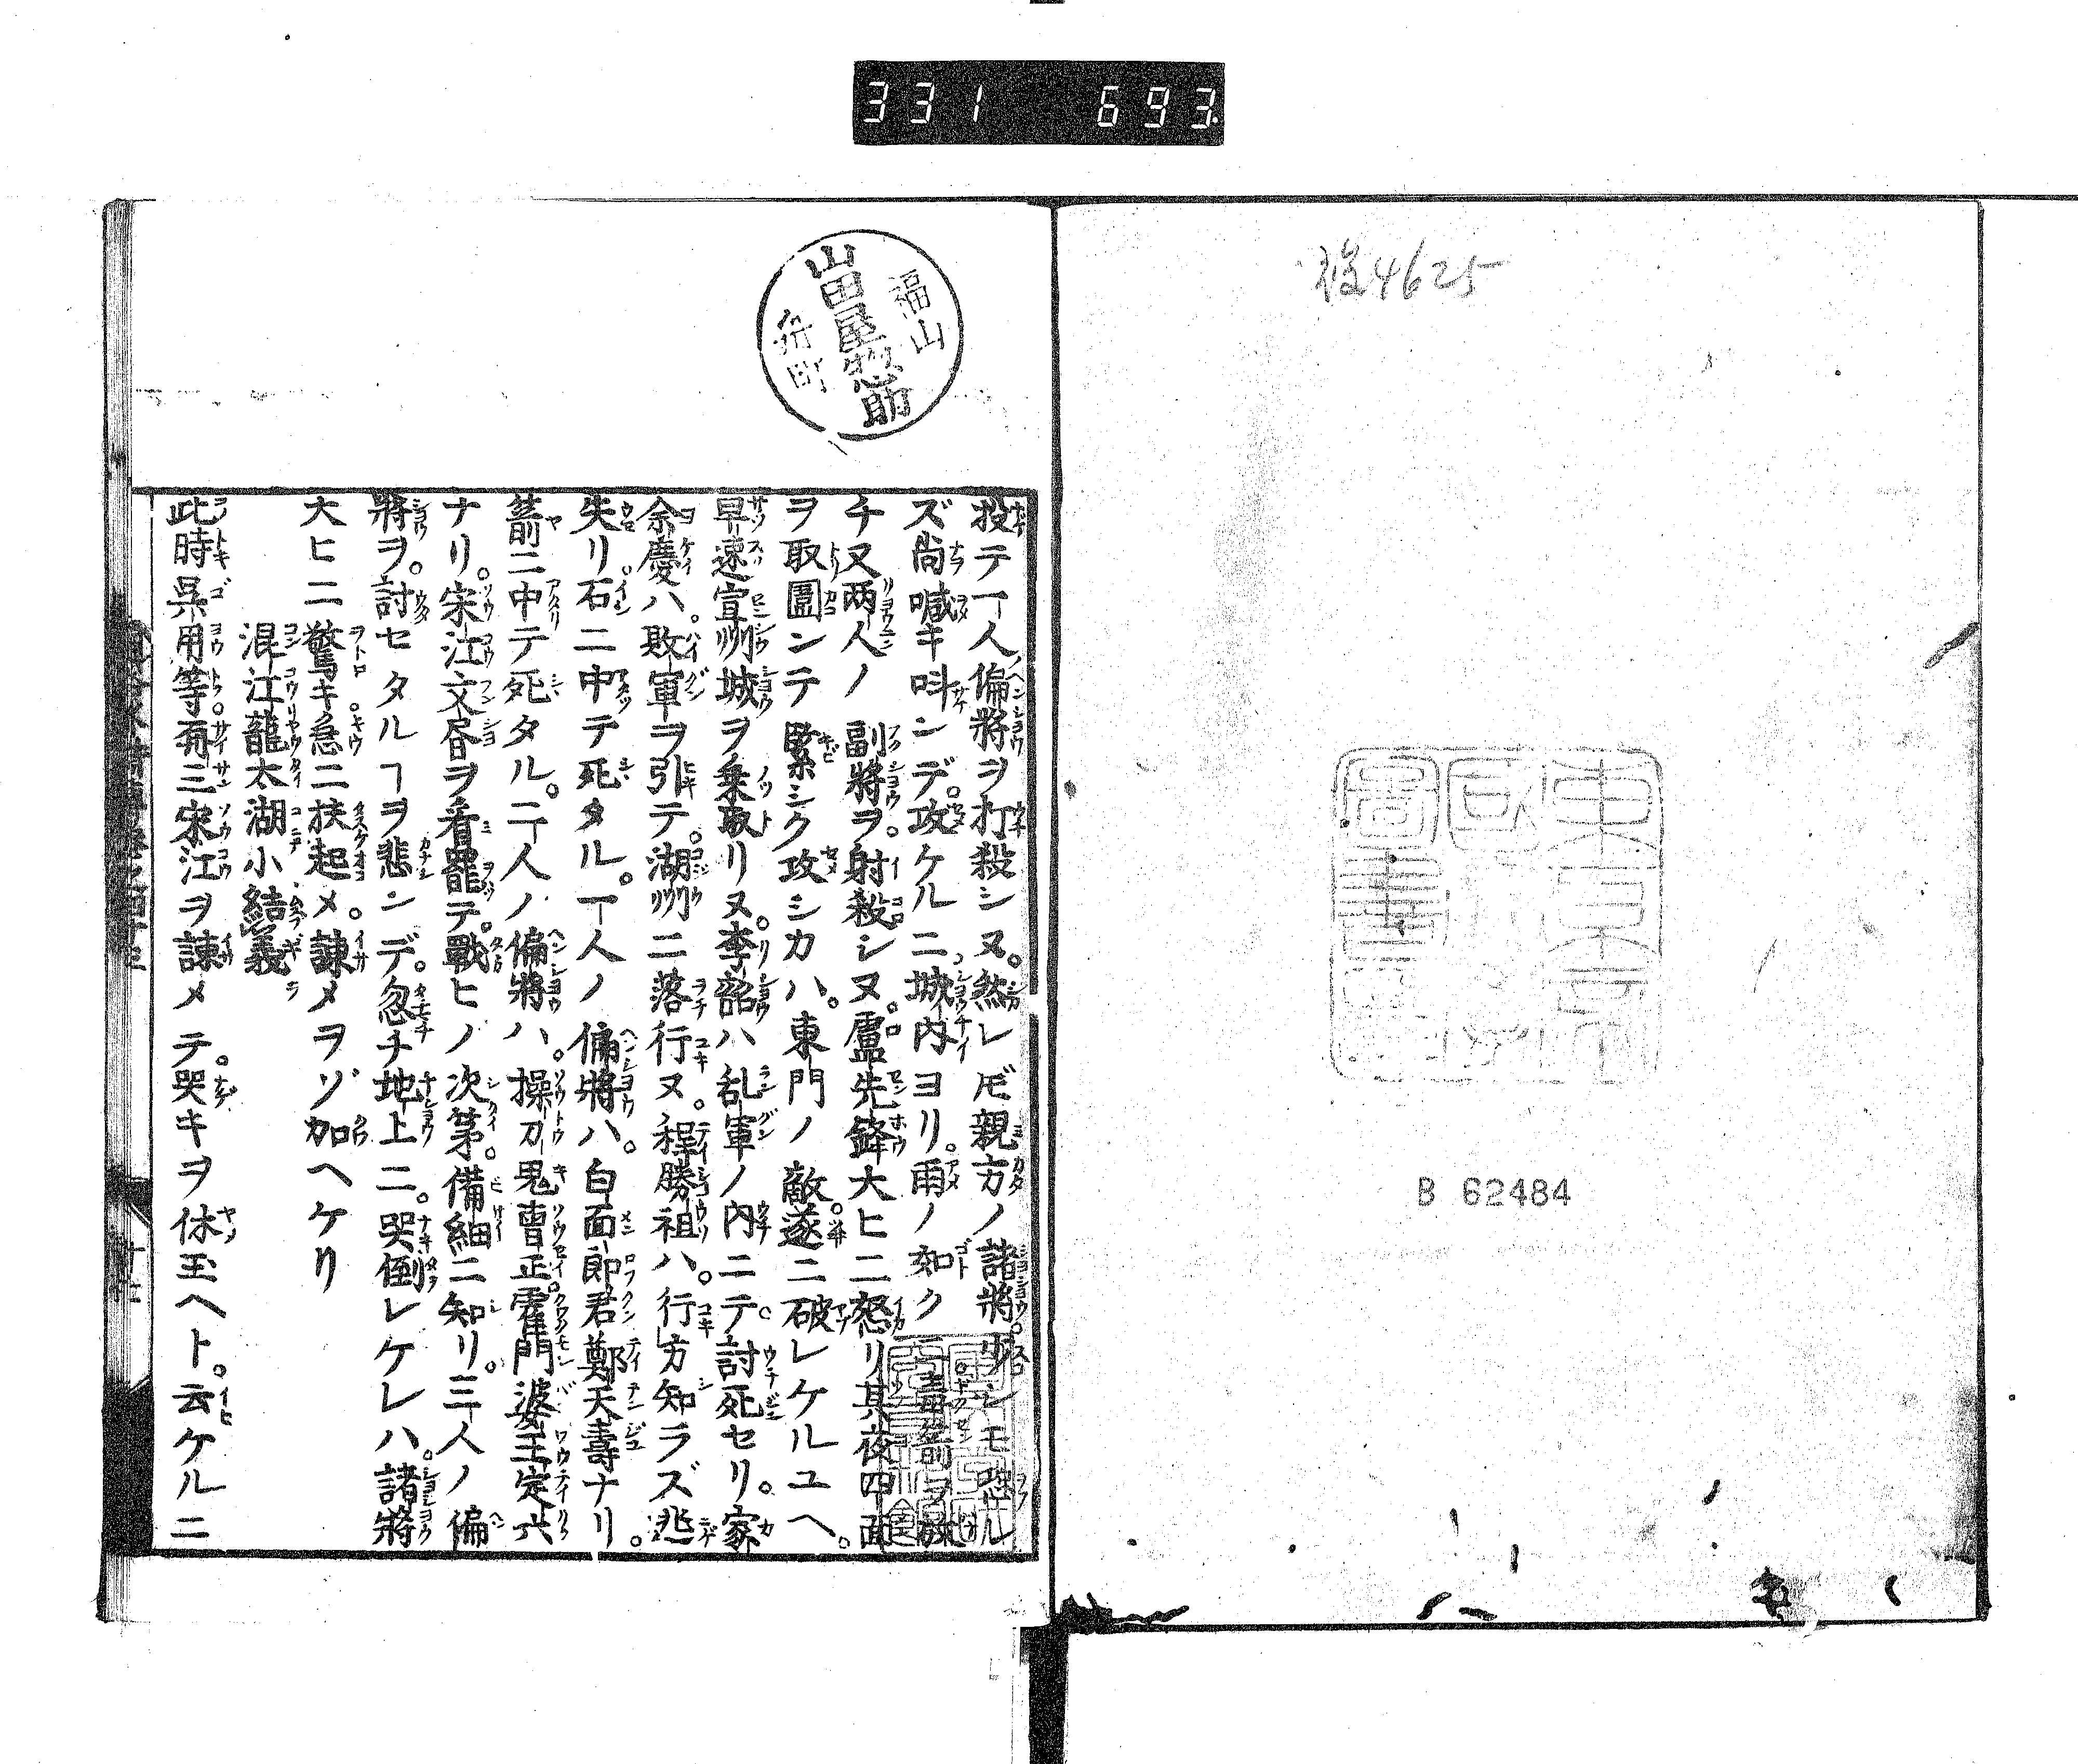 331 693
接4625
東京
圖書
B 62484
福山
山田屋惣助
府町
投テ一人偏將ヲ打殺シヌ。然レドモ親方ノ諸將。少シモ恐ル
ズ尚喊キ叫ンデ。攻ケルニ城内ヨリ。雨ノ如ク。毒箭ヲ放
チ又兩人ノ副將ヲ。射殺シヌ。盧先鋒大ヒニ怒リ其夜四面
ヲ取圍ンテ緊シク攻シカハ。東門ノ敵。遂ニ破レケルユヘ。
早速宣州城ヲ乗取リヌ。李韶ハ乱軍ノ内ニテ。討死セリ。家
余慶ハ。敗軍ヲ引テ。湖州ニ落行ヌ。程勝祖ハ。行方知ラズ逃
失リ。石ニ中テ死タル。一人ノ偏將ハ。白面郎君鄭天壽ナリ。
箭ニ中テ死タル。二人ノ偏將ハ。操刀鬼曹正。霍門婆王定六
ナリ。宋江文昏ヲ看罷テ。戰ヒノ次第。備細ニ知リ。三人ノ偏
將ヲ。討セタルヿヲ悲ンデ。忽チ地上ニ。哭倒レケレハ。諸將
大ヒニ驚キ急ニ扶起メ。諌メヲゾ加ヘケリ
混江龍太湖小結義
此時呉用等。再三宋江ヲ諌メテ。哭キヲ休玉ヘト。云ケルニ